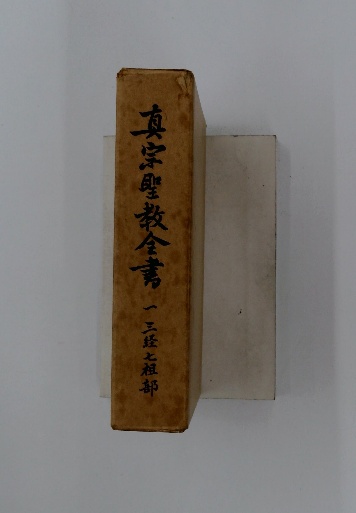 真宗聖教全書
一 三経七祖部